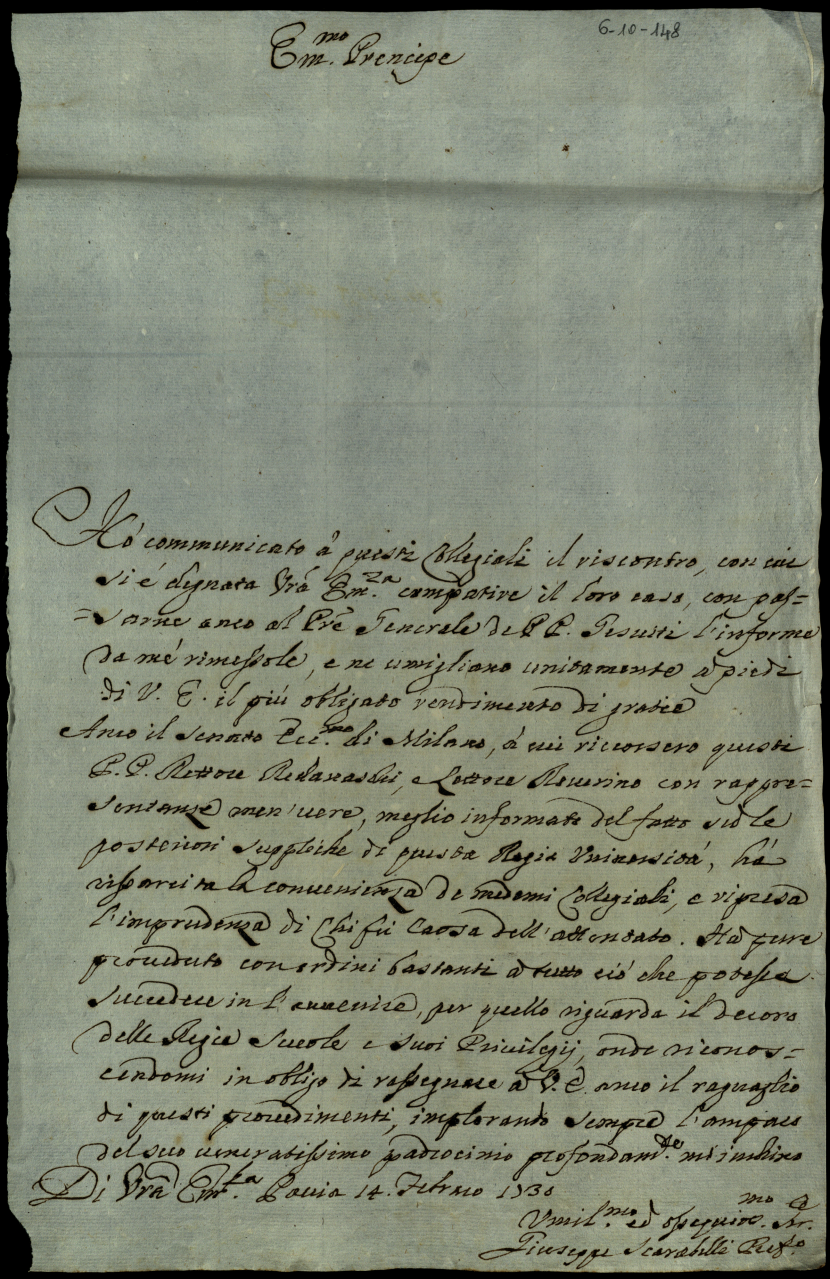 6-10-148
Em.mo Prencipe
Hó communicato á questi Collegiali il riscontro, con cui
si é degnata Vrã Em.za compatire il loro caso, con pas=
=sarne anco al Prẽ Generale de PP. Gesuiti l'informe
da mé rimessole, e ne umigliano unitamente a piedi
di V. E. il piú obligato rendimento di gratie
Anco il Senato Ecc.mo di Milano, á cui ricorsero questi
P.P. Rettore e Lettore con rappre=
sentanze men'vere, meglio informato del fatto sú le
posteriori suppliche di questa Regia Università, há
risparcita la convenienza de medemi Collegiali, e ripresa
l'imprudenza di Chi fú Caosa dell'attentato. Há pure
proueduto con ordini bastanti á tutto ció che potesse
succedere in l'auuenire, per quello riguarda il decoro
delle Regie Scuole e suoi Privilegij, onde riconos=
cendomi in obligo di rassegnare á V. E. anco il raguaglio
di questi procedimenti, implorando sempre l'ampaco
del suo veneratissimo padrocinio profondam.te m'inchino
Di Vrã Em.za Pavia 14. Febraro 1730
Vmil.mo ed ossequios.mo Sr.
Giuseppe Scarabelli